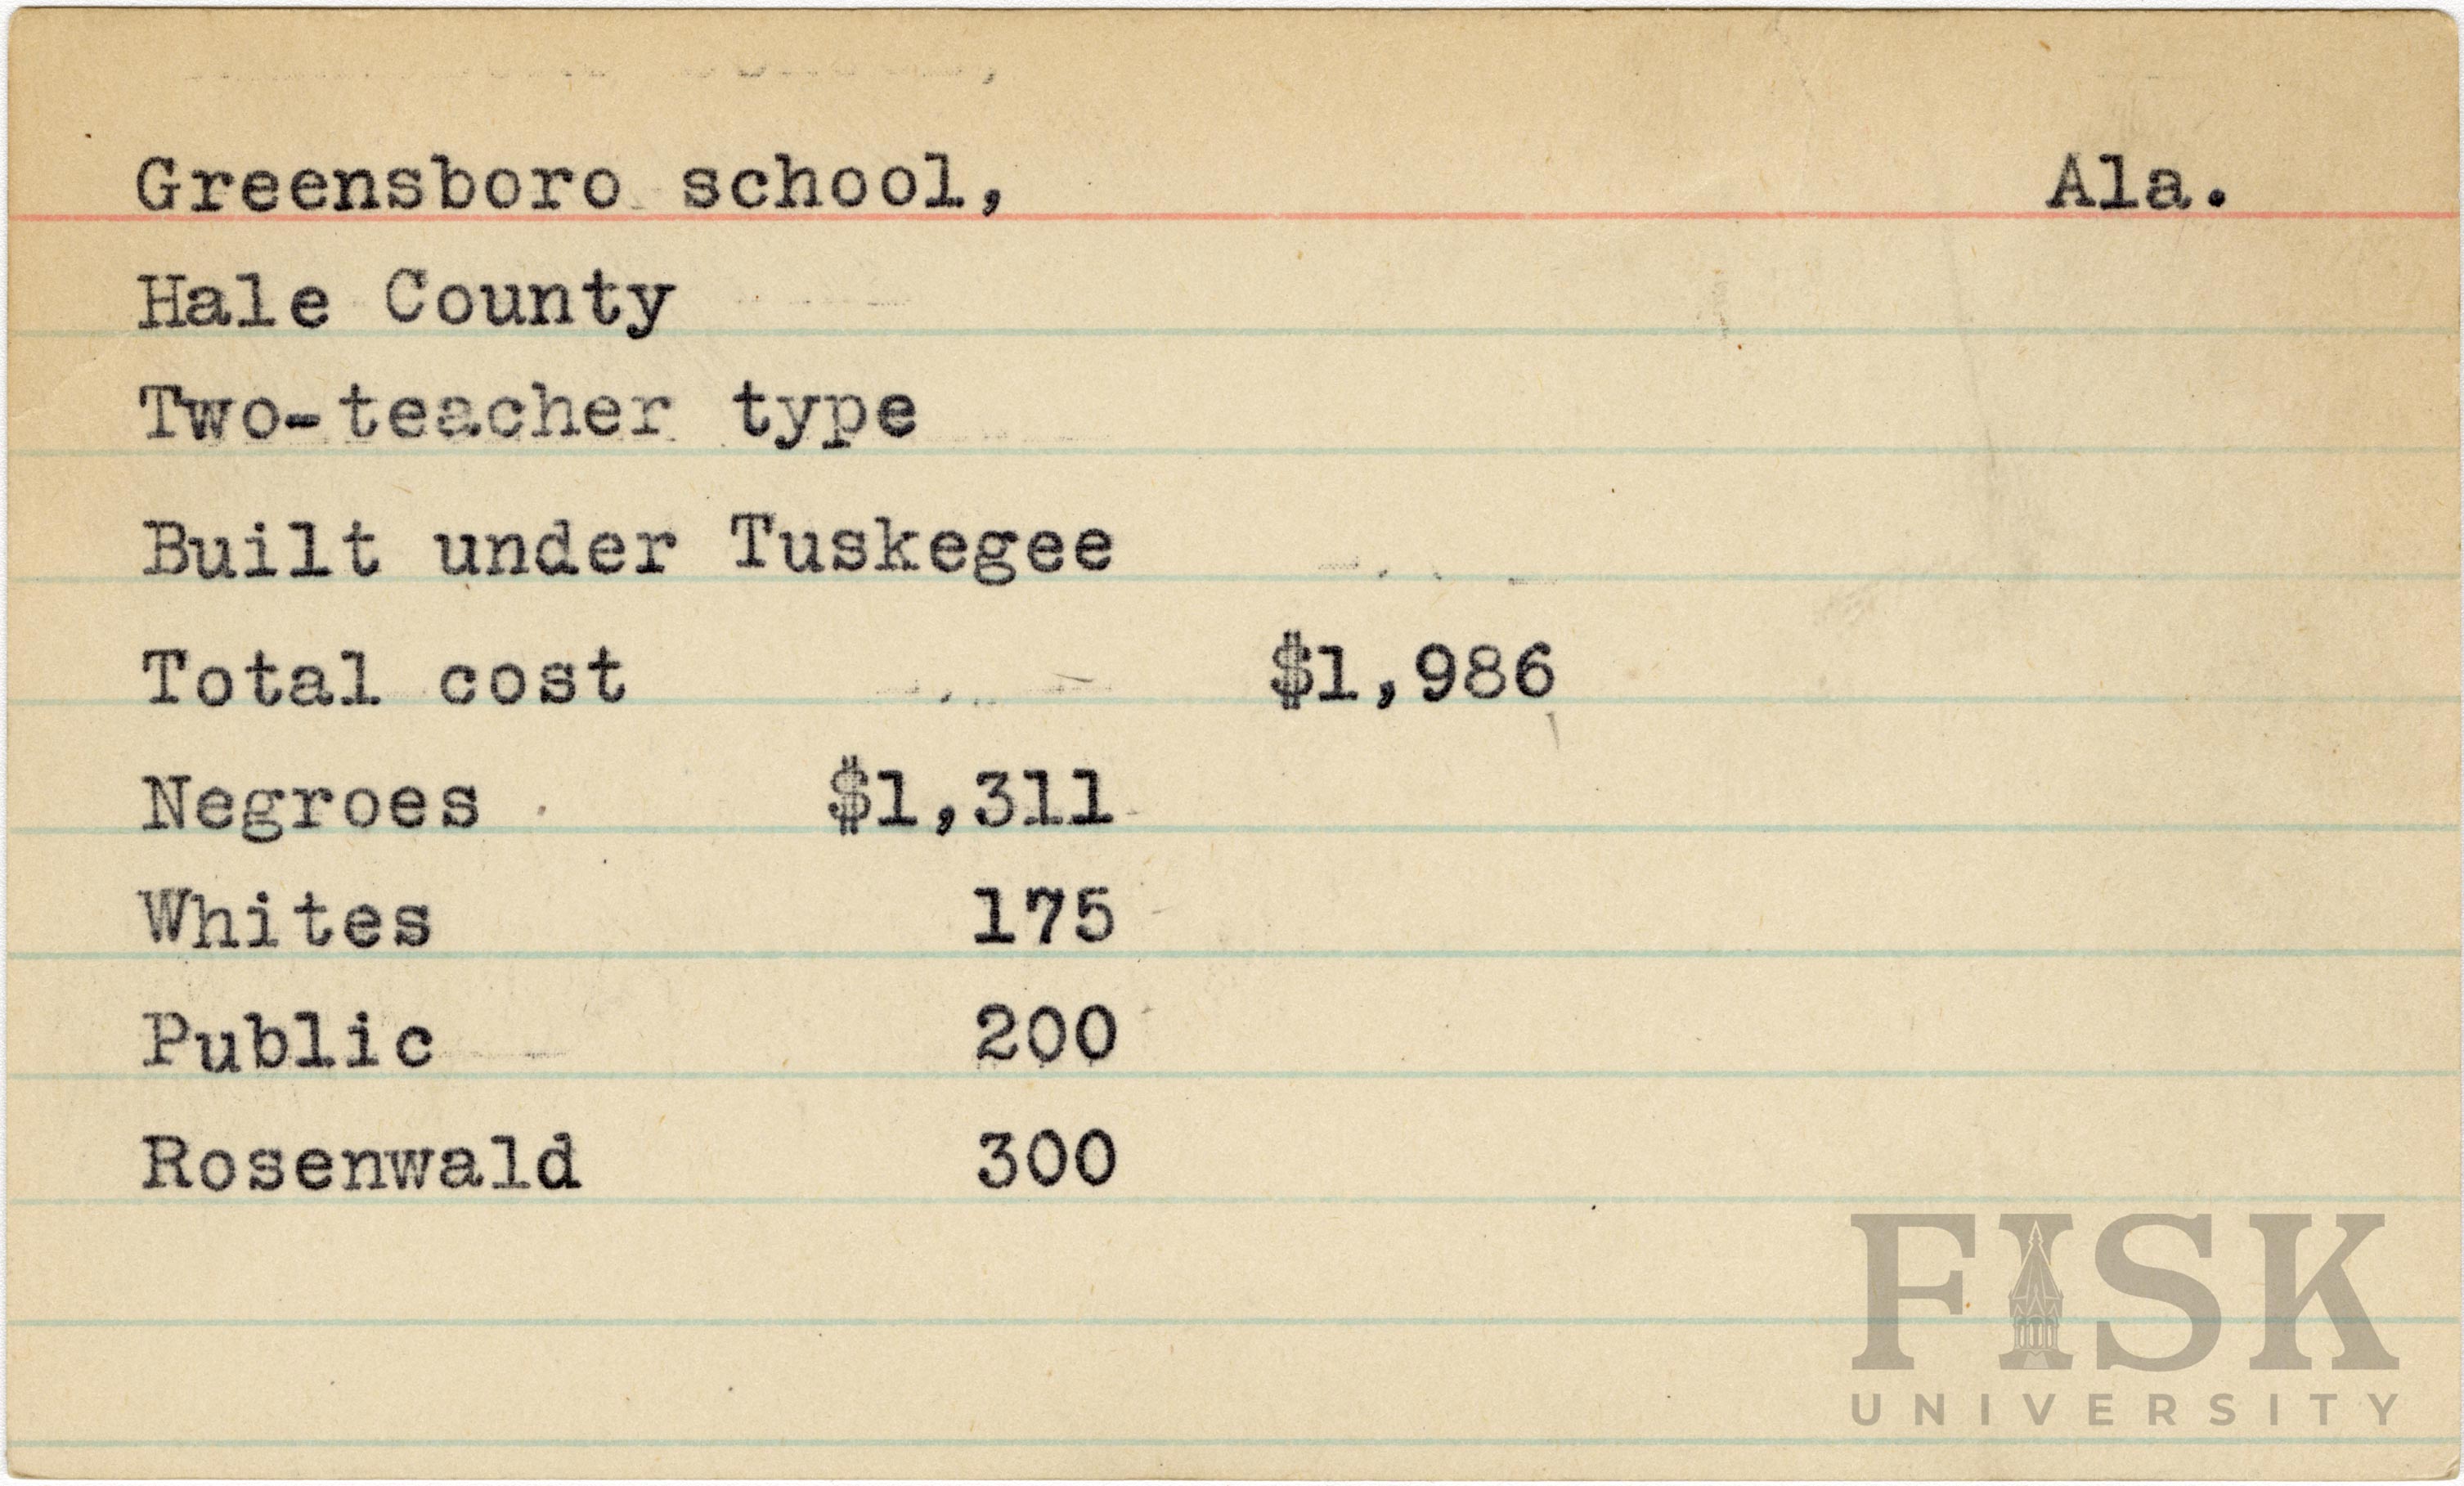 Greensboro school, Ala.
Hale County
Two-teacher type
Built under Tuskegee
Total cost $1,986
Negroes $1,311
Whites 175
Public 200
Rosenwald 300
FISK
UNIVERSITY